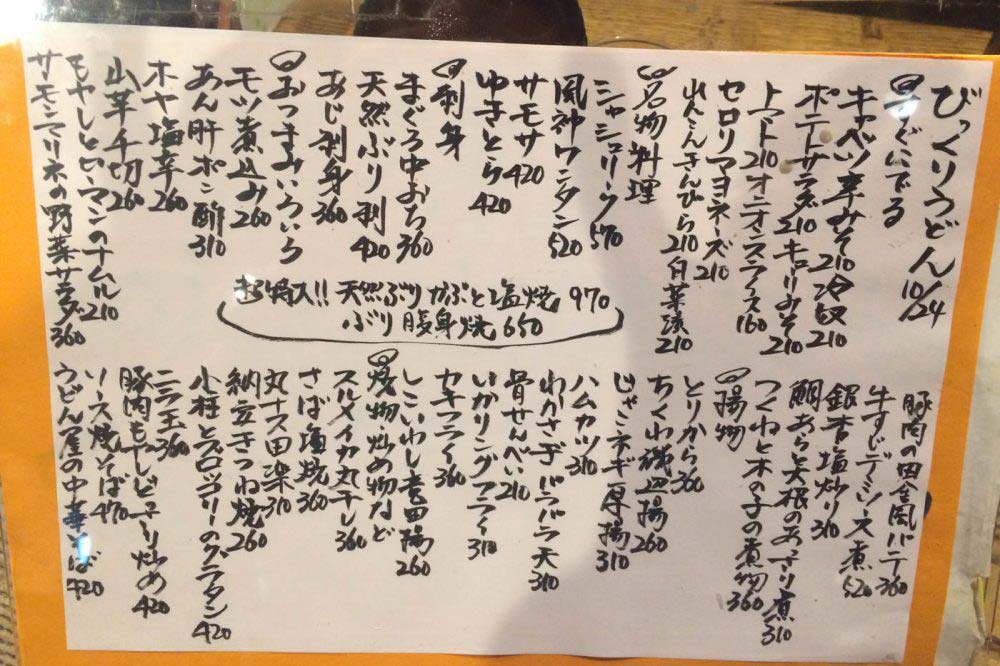 びっくりうどん 10/24
すぐにでる
キャベツ辛みそ210 冷奴210
ポテトサラダ210 キューリみそ210
トマト210 オニオンスライス160
セロリマヨネーズ210
れんこんきんぴら210 白菜漬210
名物料理
シャシュリーク570
風神ワンタン520
サモサ420
ゆきとら420
刺身
まぐろ中おち360
天然ぶり刺420
あじ刺身360
おつまみいろいろ
モツ煮込み260
あん肝ポン酢310
ホヤ塩辛260
山芋千切260
もやしとピーマンのナムル210
サーモンマリネの野菜サラダ360
超特大!! 天然ぶりかぶと塩焼 970
ぶり腹身焼 650
豚肉の田舎風パテ360
牛すじデミソース煮520
銀杏塩炒り310
鯛あらと大根のあっさり煮310
つくねと木の子の煮物360
揚物
とりから360
ちくわ磯辺揚260
じゃこネギ厚揚310
ハムカツ310
わかさぎパラパラ天310
骨せんべい210
いかリングフライ310
カキフライ360
しこいわし竜田揚260
焼物炒め物など
スルメイカ丸干し360
さば塩焼360
丸ナス田楽310
納豆きつね焼260
小柱とブロッコリーのグラタン420
ニラ玉360
豚肉もやしピリ辛炒め420
ソース焼そば470
うどん屋の中華そば420